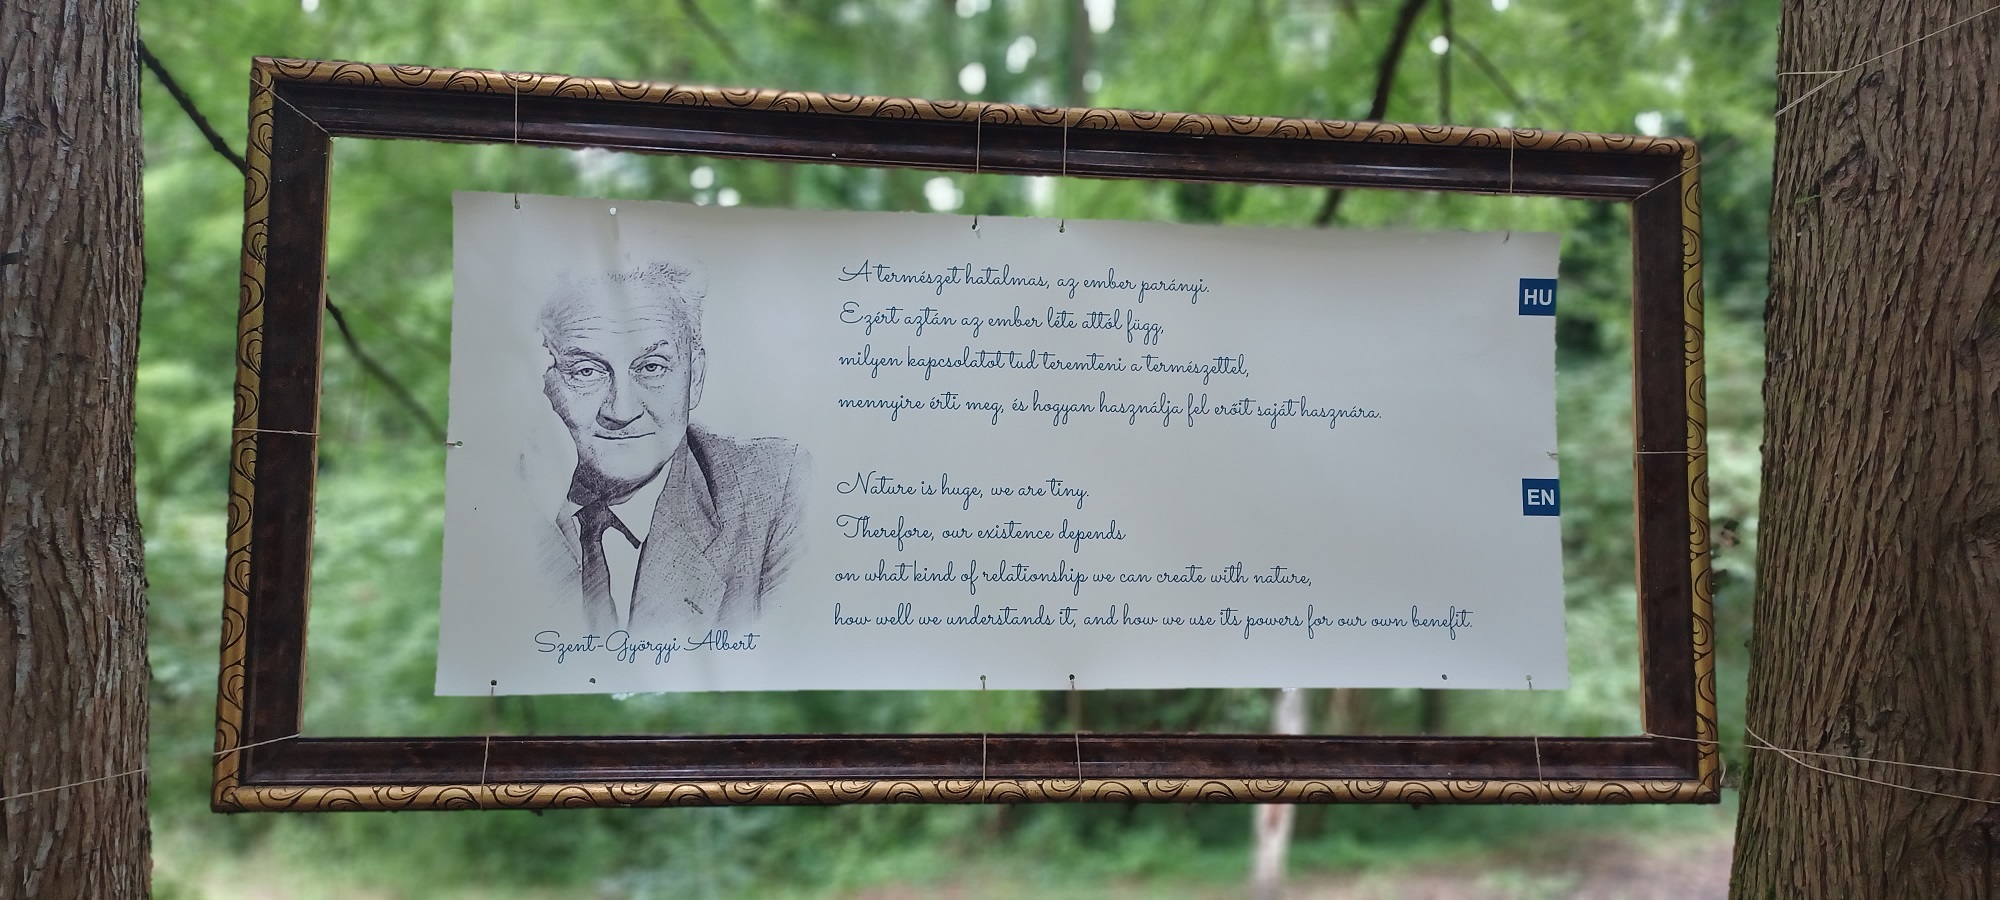 A természet hatalmas, az ember parányi.
Ezért aztán az ember léte attól függ,
milyen kapcsolatot tud teremteni a természettel,
mennyire érti meg, és hogyan használja fel erőit saját hasznára.
HU
Nature is huge, we are tiny.
Therefore, our existence depends
on what kind of relationship we can create with nature,
how well we understands it, and how we use its powers for our own benefit.
EN
Szent-Györgyi Albert